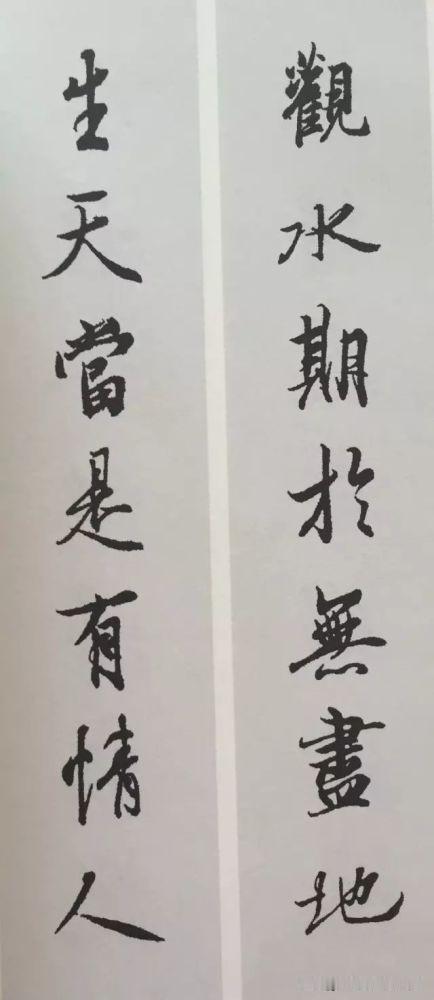 觀水期於無盡地
生天當是有情人